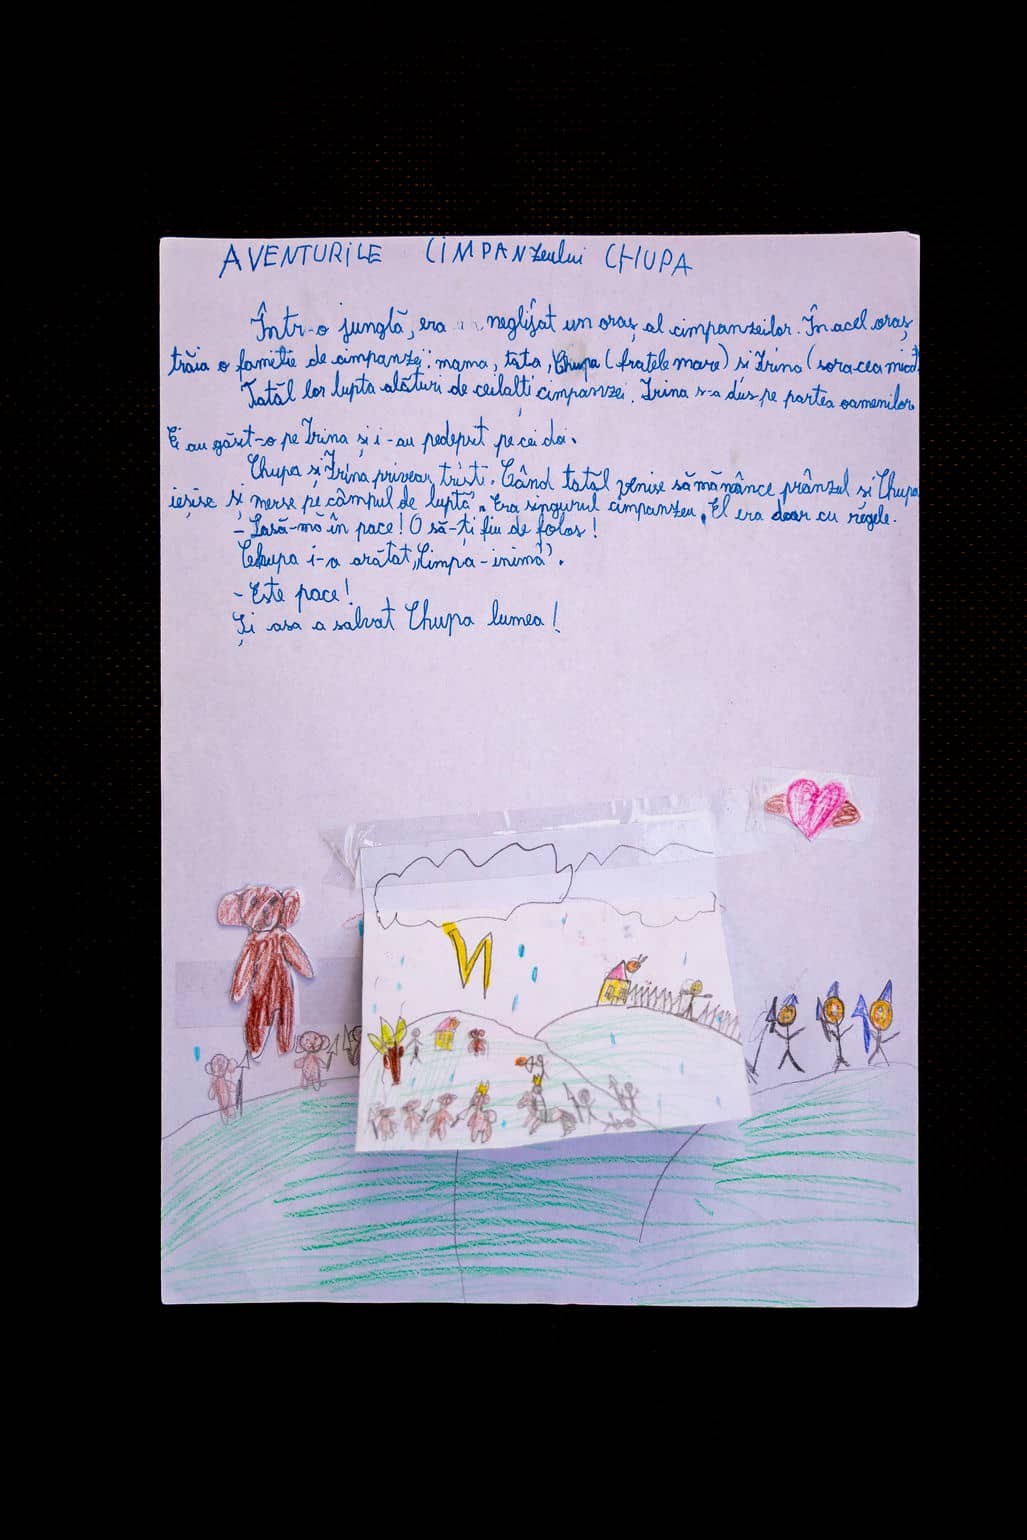 AVENTURILE CIMPANZeului CHUPA
Într-o junglă, era neglijat un oraș al cimpanzeilor. În acel oraș
trăia o familie de cimpanzei: mama, tata, Chupa (fratele mare) si Irina (sora cea mică).
Tatăl lor lupta alături de ceilalti cimpanzei. Irina s-a dus pe partea oamenilor.
Ei au găsit-o pe Irina și i-au pedepsit pe cei doi.
Chupa și Irina priveau tristi. Când tatăl venise să mănânce prânzul si Chupa
ieșise și merse pe câmpul de luptă. Era singurul cimpanzeu. El era doar cu regele.
- Lasă-mă în pace! O să-ți fiu de folos!
Chupa i-a arătat „Cimpa-inimă”.
- Este pace!
Și asa a salvat Chupa lumea!